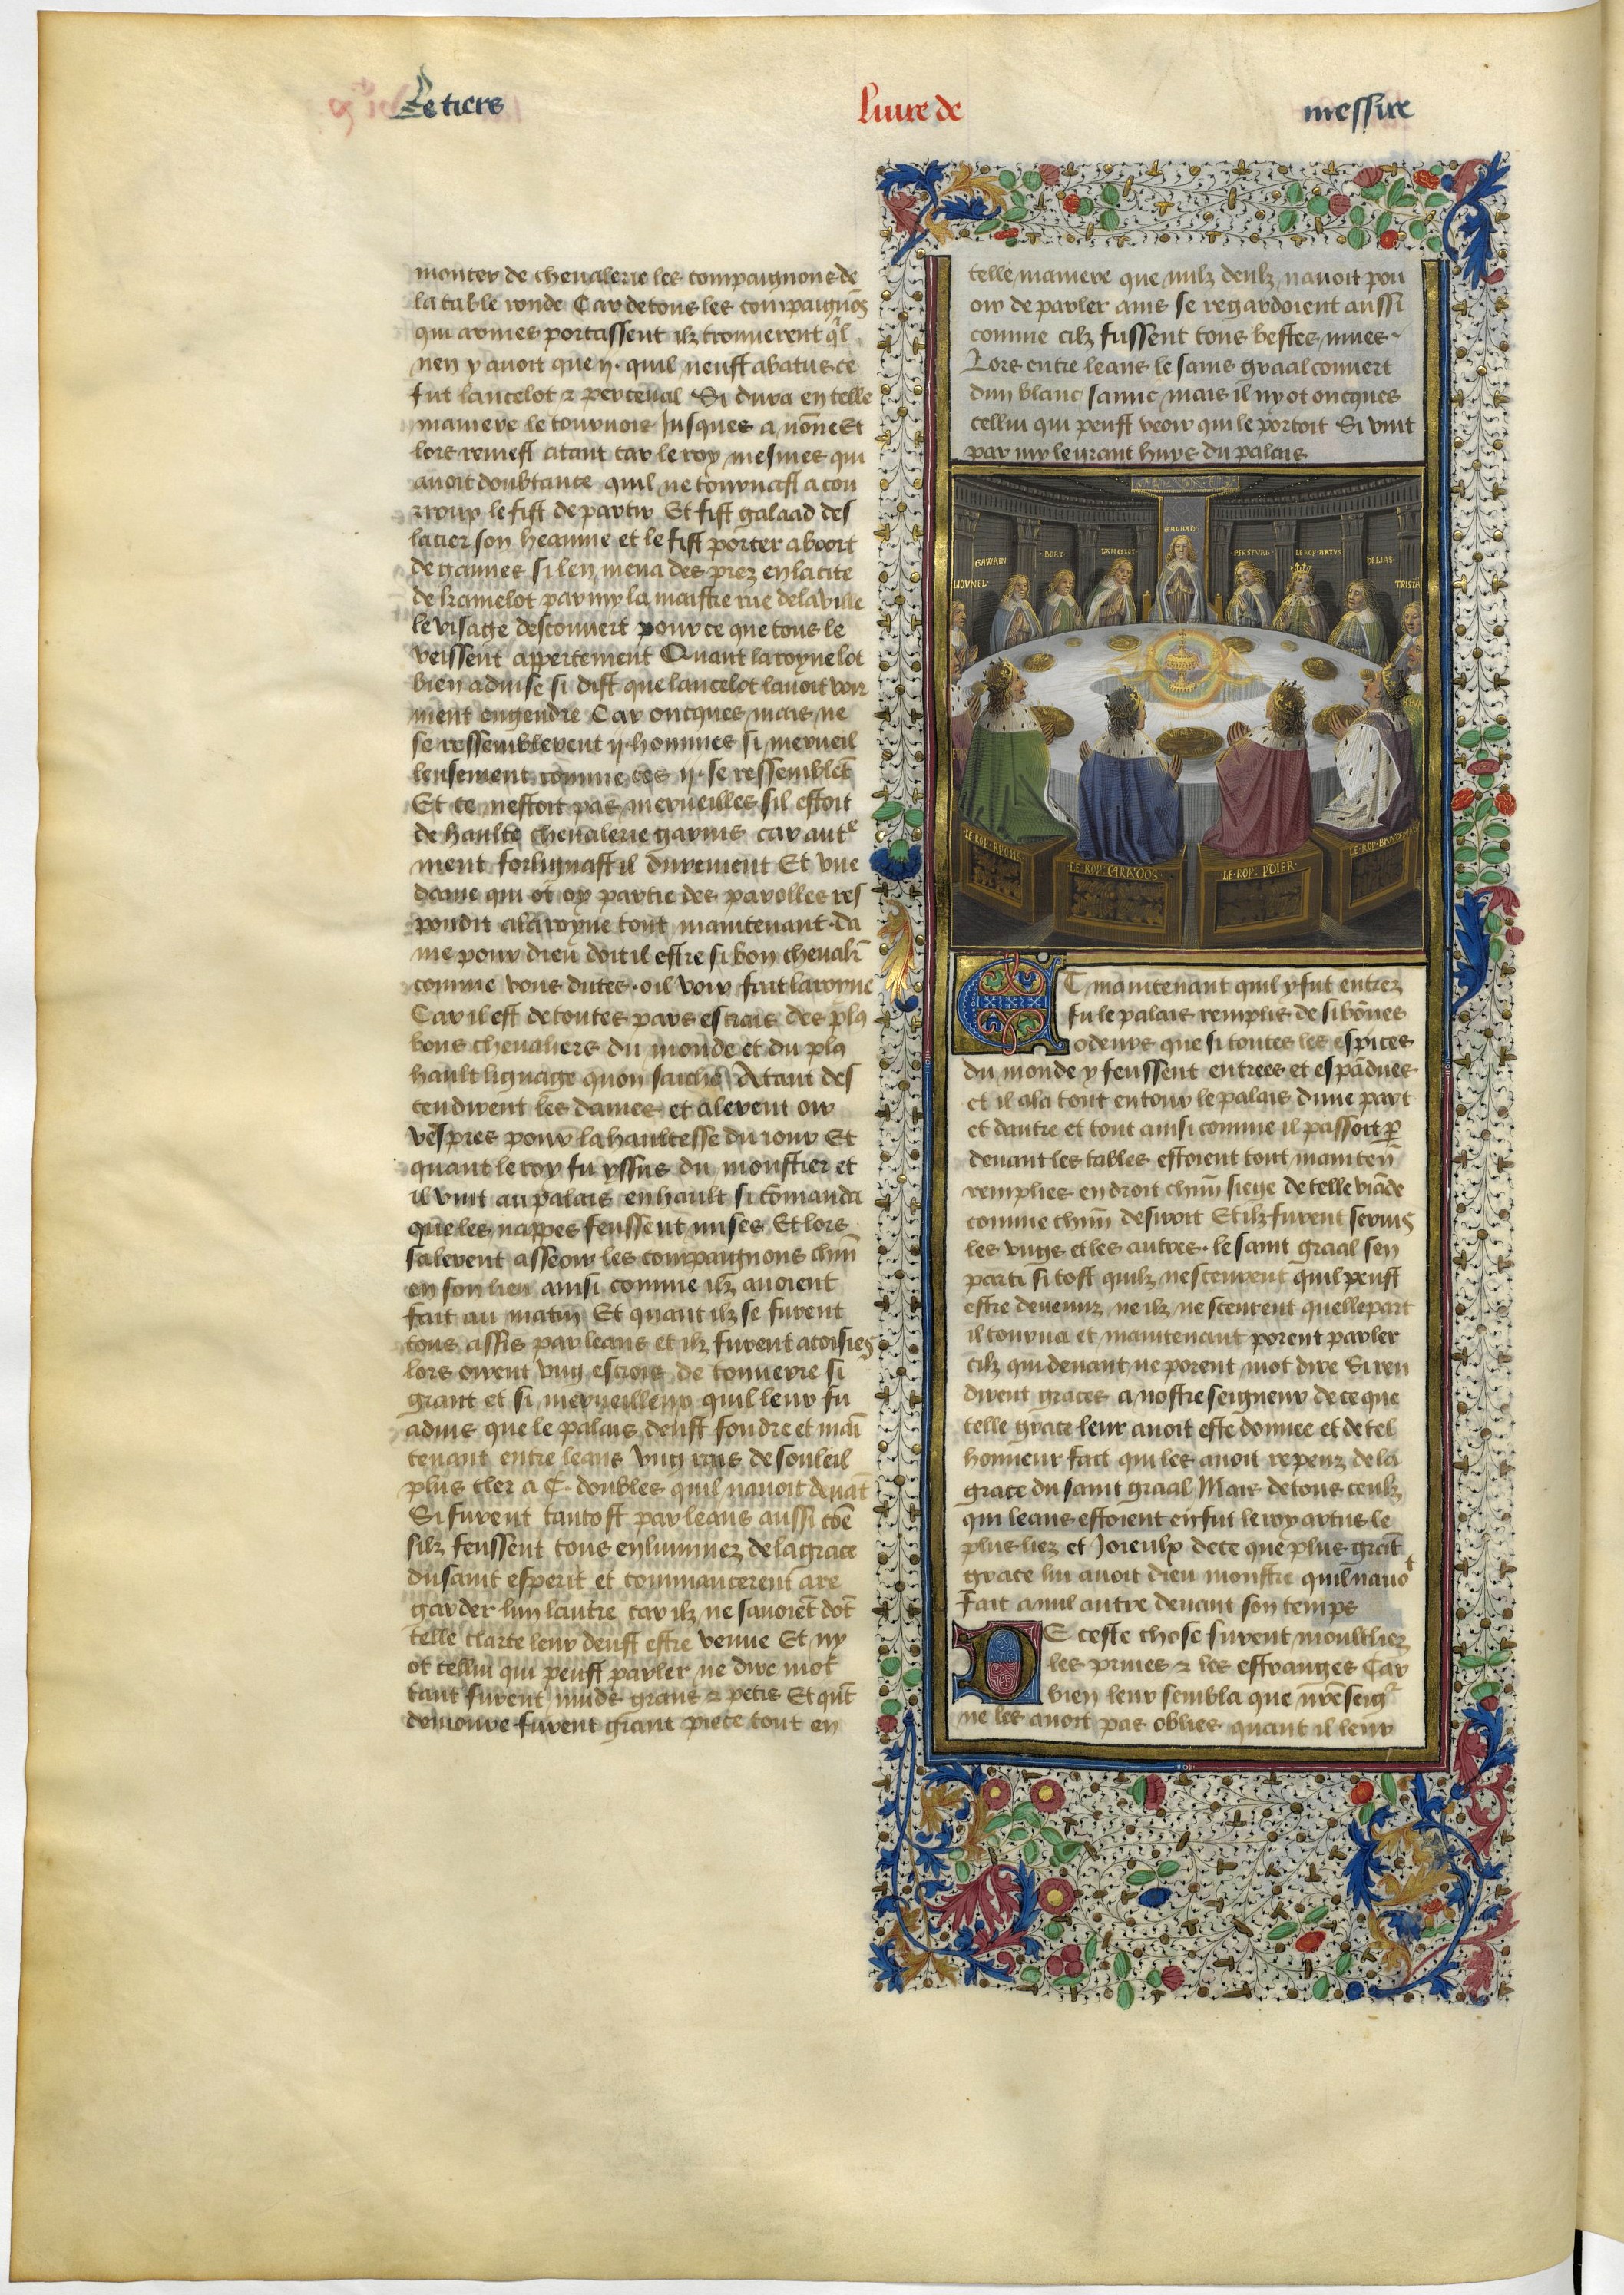 Le tiers
liure de
messire
monter de cheualerie les compaignons de
la table ronde Car de tous les compaignōs
qui armes portassent ilz trouuerent q̄l
nen y auoit que ij. quil neust abatus ce
fut lancelot ⁊ perceual Si dura en telle
maniere le tournois Jusques a nōne Et
lors remest atant car le roy mesmes qui
auoit doubtance quil ne tournast a cou
rroux le fist departir Et fist galaad des
lacier son heaume et le fist porter a boort
de gannes si len mena des prez en la cite
de kamelot par my la maistre rue de la ville
le visage descouuert pour ce que tous le
veissent appertement Quant la royne lot
bien aduise si dist que lancelot lauoit voir
ment engendre Car oncques mais ne
se ressemblerent ij. hommes si merueil
leusement comme ces ij. se ressemblēt
Et ce nestoit pas merueilles sil estoit
de haulte cheualerie garnis car autͤ
ment forlignast il durement Et vne
dame qui ot oy partie des parolles res
pondit a la royne tout maintenant. da
me pour dieu doit il estre si bon cheualr̄
comme vous dittes. oil voir fait la royne
Car il est de toutes pars estrais des plꝯ
bons cheualiers du monde et du plꝯ
hault lignage quon sache Atant des
cendirent les dames et alerent oir
vespres pour la haultesse du iour Et
quant le roy fu yssus du moustier et
il vint au palais en hault si cōmanda
que les nappes feussent mises Et lors
salerent asseoir les compaignons chūn
en son lieu ainsi comme ilz auoient
fait au matin Et quant ilz se furent
tous assis par leans et ilz furent acoisies
lors oirent vng escrois de tonnerre si
grant et si merueilleux quil leur fu
aduis que le palais deust fondre et mai
tenant entre leans vng rais de souleil
plus cler a C. doubles quil nauoit deuāt
Si furent tantost par leans aussi cōe
silz feussent tous enluminez de la grace
du saint esperit et commancerent a re
garder lun lautre car ilz ne sauoiēt dōt
telle clarte leur deust estre venue Et ny
ot cellui qui peust parler ne dire mot
tant furent muds grans ⁊ petis Et qūt
demoure furent grant piece tout en
telle maniere que nulz deulz nauoit pou
oir de parler ains se regardoient aussi
comme cilz fussent tous bestes mues.
Lors entre leans le sains graal couuert
dun blanc samic mais il ny ot oncques
cellui qui peust veoir qui le portoit Si vint
par my le grant huys du palais
GALAAD
GAWAIN
BORT
LANCELOT
PERSEVAL
LE ROY ARTVS
HELIAS
LIOVNEL
TRISTĀ
LE ROY KVCHS
LE ROY CARROOS
LE ROY YDIER
ET maintenant quil y fut entrez
fu le palais remplis de si bōnes
odeurs que si toutes les espices
du monde y feussent entrees et espādues
et il ala tout entour le palais dune part
et dautre et tout ainsi comme il passoit ꝑ
deuant les tables estoient tout mainten̄
remplies en droit chūn siege de telle viāde
comme chūn desiroit Et ilz furent seruis
les vngs et les autres. le saint graal sen
parti si tost quilz ne sceurent quil peust
estre deuenuz ne ilz ne sceurent quelle part
il tourna et maintenant porent parler
cilz qui deuant ne porent mot dire Si ren
dirent graces a nostre seigneur de ce que
telle grace leur auoit este donnee et de tel
honneur fait qui les auoit repeuz de la
grace du saint graal Mais de tous ceulz
qui leans estoient en fut le roy artus le
plus liez et Joieulx de ce que plus grāt
grace lui auoit dieu monstre quil nauoᵗ
fait a nul autre deuant son temps
DE ceste chose furent moult liez
les priues ⁊ les estranges Car
bien leur sembla que nr̄e seigʳ
ne les auoit pas oblies quant il leur